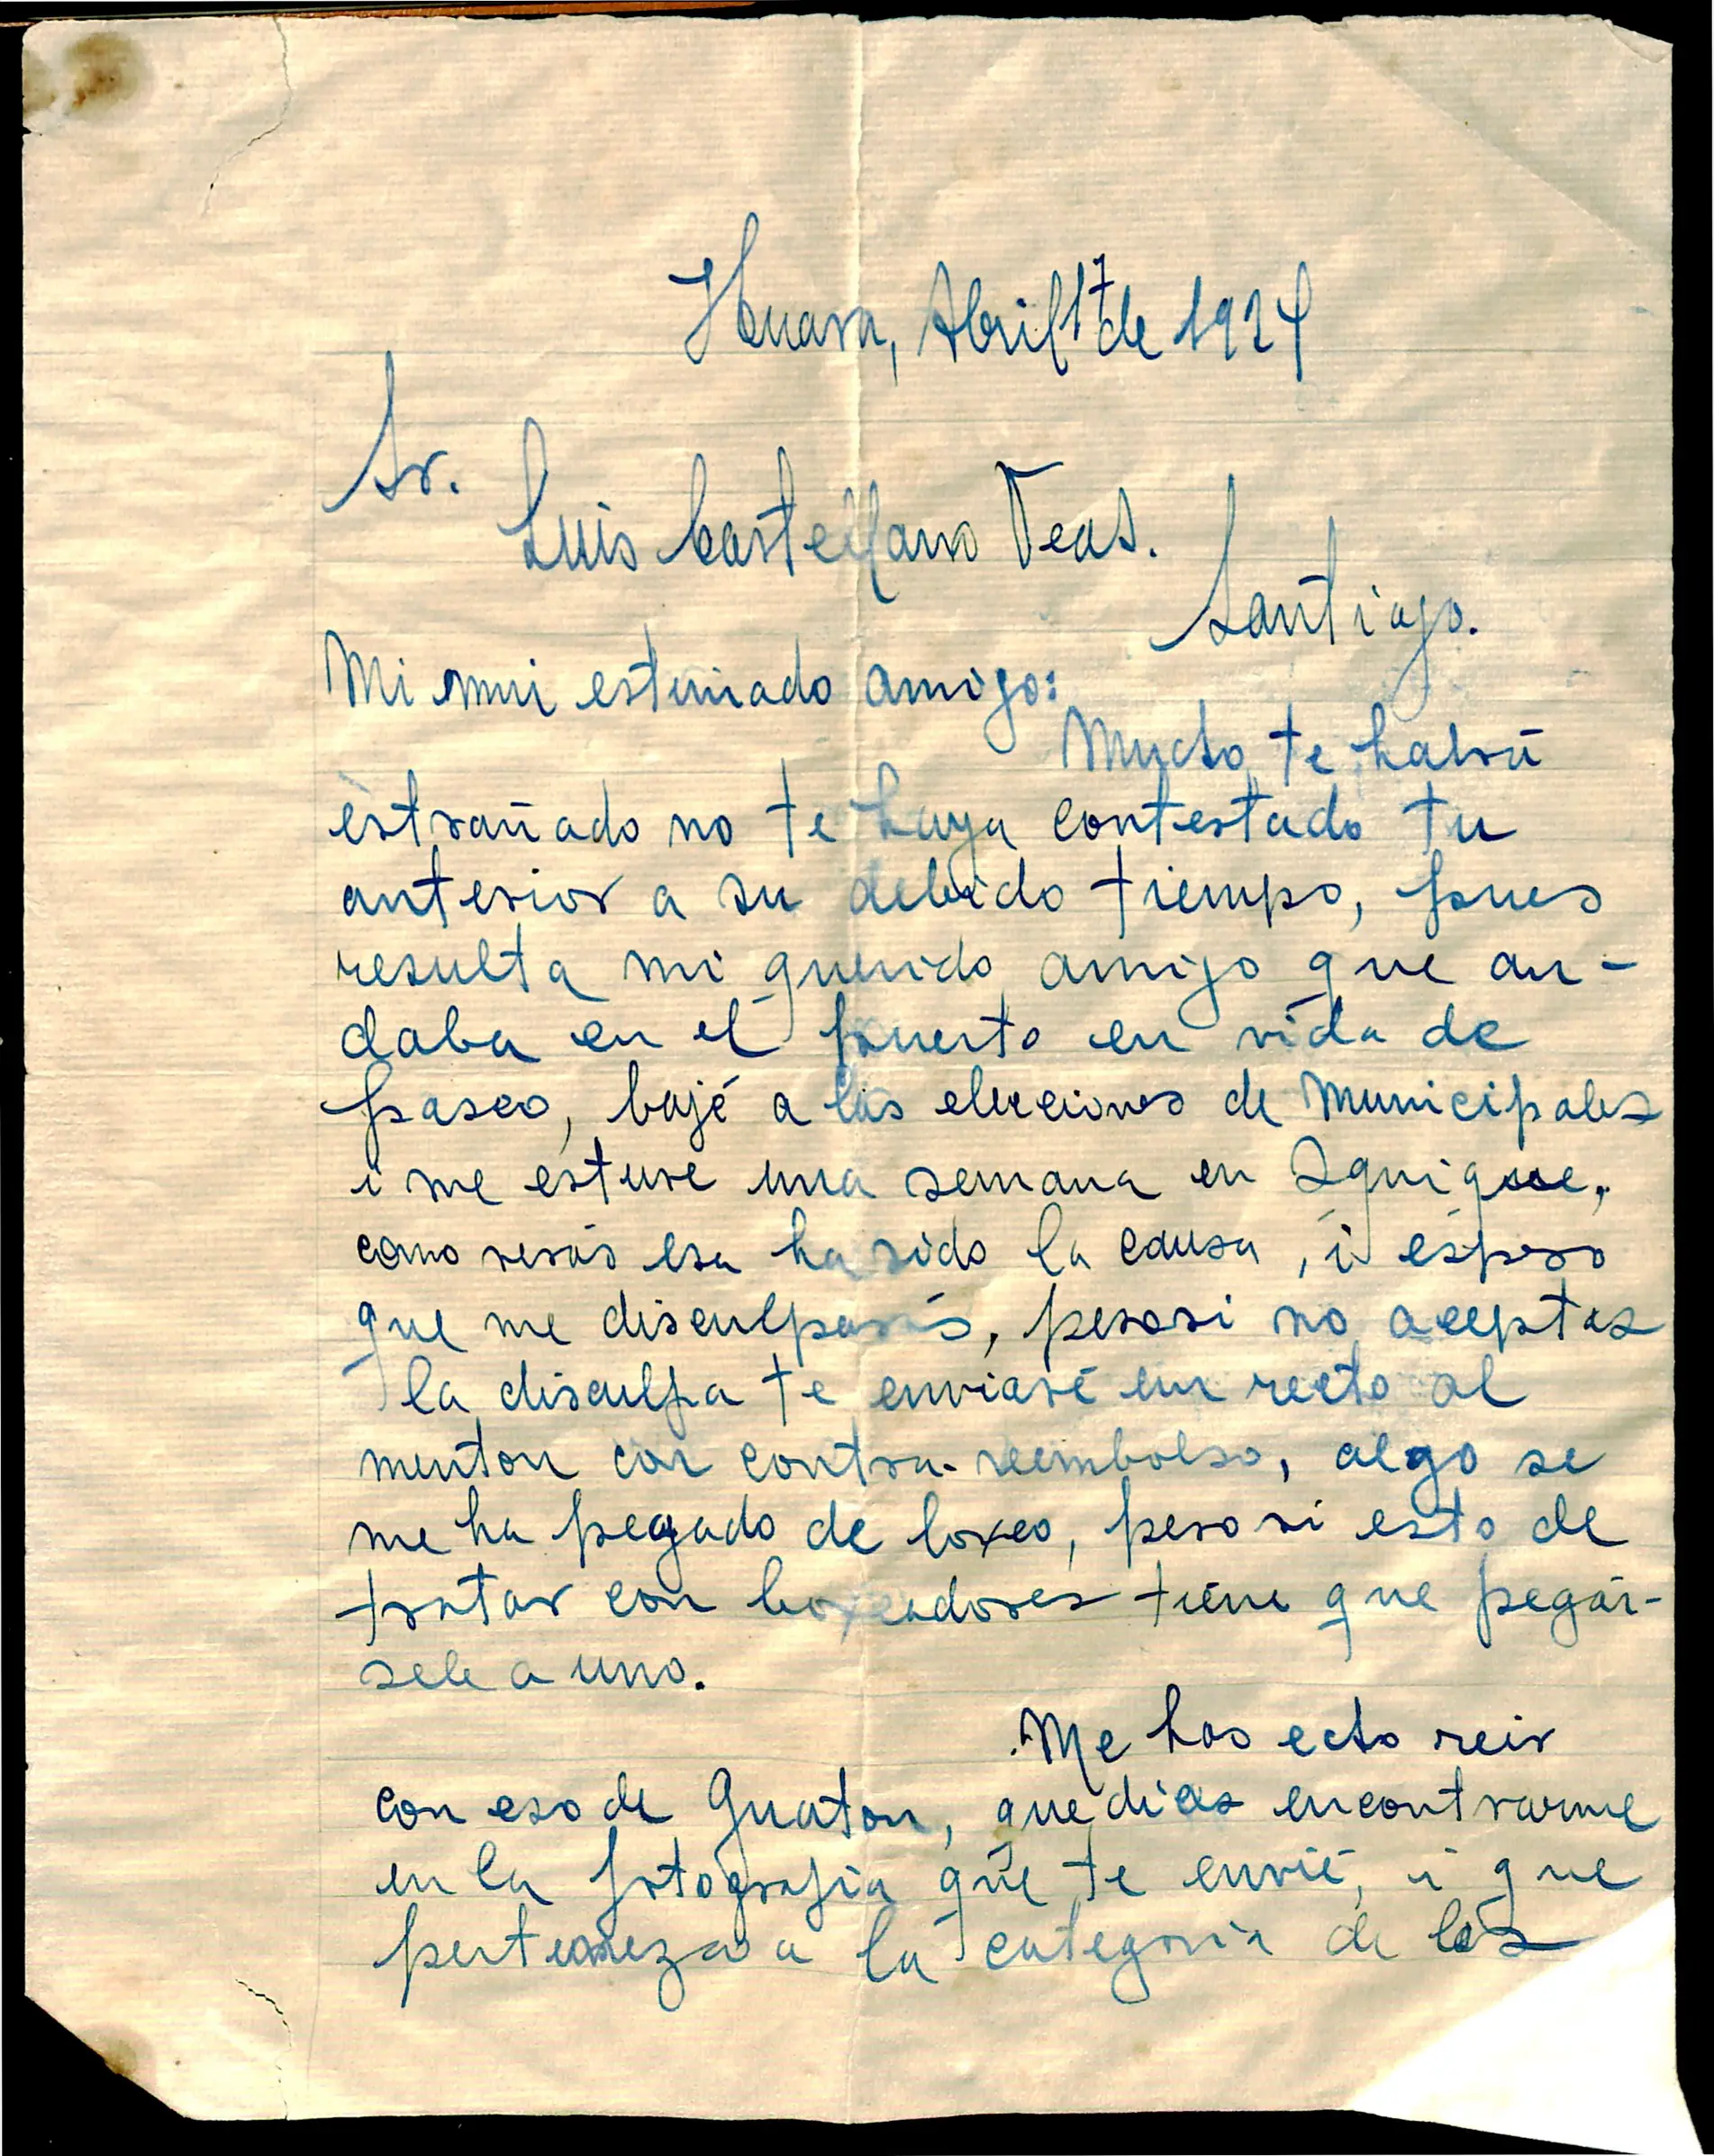 Huara, Abril 17 de 1924
Sr.
Luis Castellano Veas.
Santiago.
Mi mui estimado amigo:
Mucho te habrá
estrañado no te haya contestado tu
anterior a su debido tiempo, pues
resulta mi querido amigo que an-
daba en el puerto en vida de
paseo, bajé a las elecciones de Municipales
i me estuve una semana en Iquique,
como verás esa ha sido la causa, i espero
que me disculparás, pero si no aceptas
la disculpa te enviaré un recto al
menton con contra-reembolso, algo se
me ha pegado de boxeo, pero si esto de
tratar con boxeadores tiene que pegár-
sele a uno.
Me has echo reir
con eso de Guaton, que dices encontrarme
en la fotografia que te envié, i que
pertenezca a la categoria de los